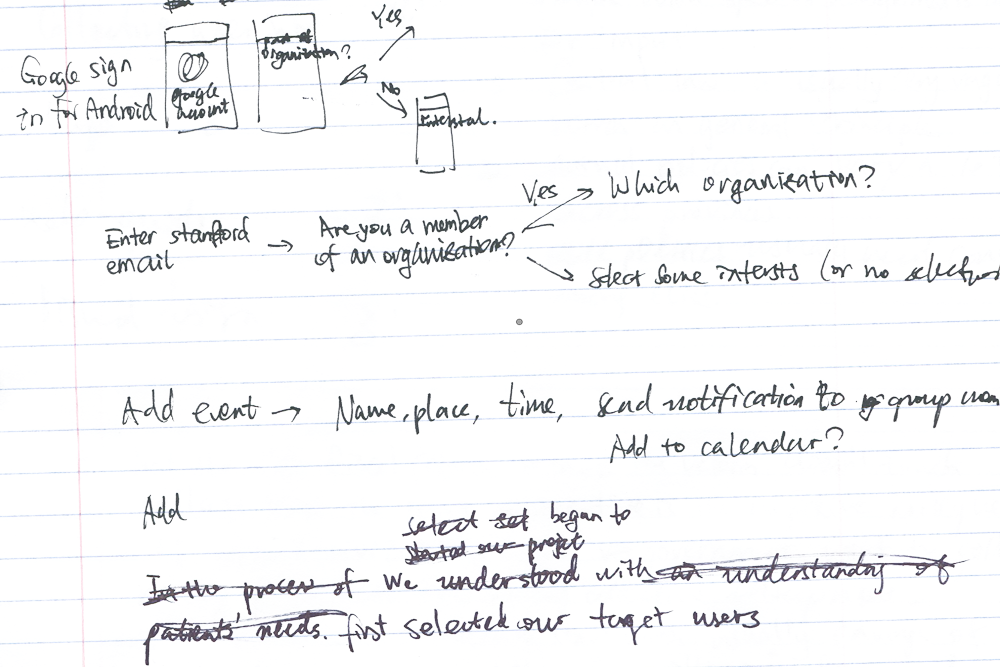 Google sign
in for Android
google
account
part of
organization?
Yes
No
Enter stanford
email
→
Are you a member
of an organisation?
Yes
→ Which organisation?
Select some intersts (or no
Add event → Name, place, time, send notification to group
Add to calendar?
Add
select set began to
started our projet
In the process of We understood with an understanding of
patients' needs. first selected our target users